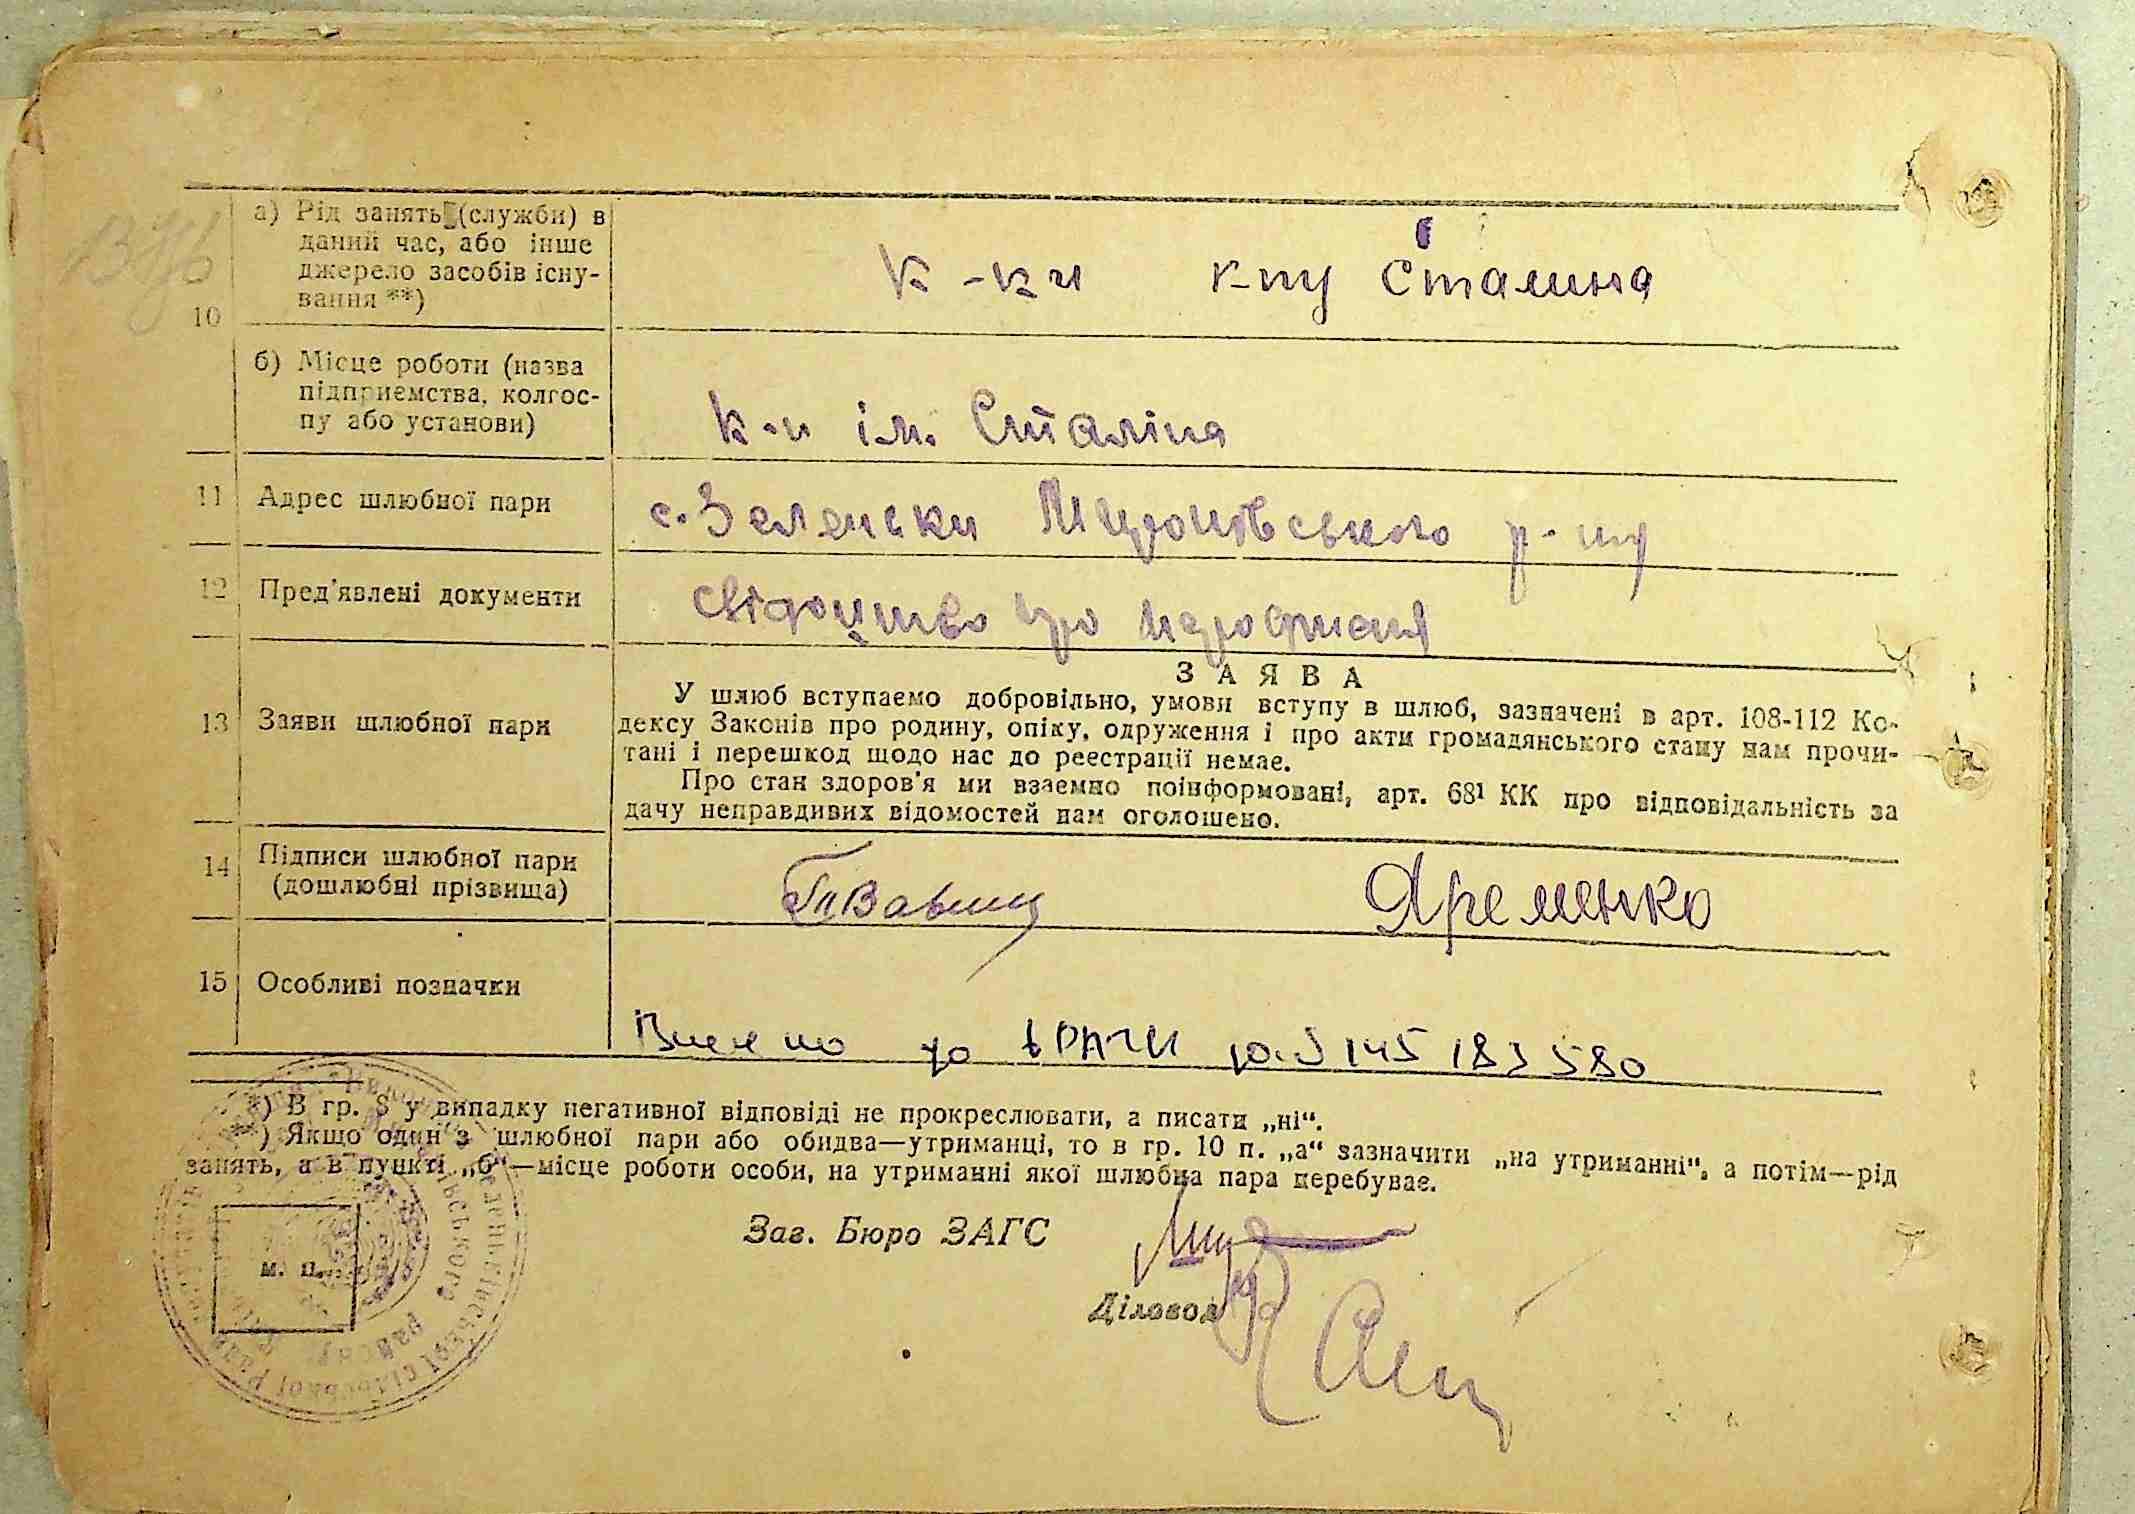 а) Рід занять (служби) в
даний час, або інше
джерело засобів існу-
вання **)
10
к-ки к-пу Сталина
б) Місце роботи (назва
підприємства, колгос-
пу або установи)
к-п ім. Сталіна
11 Адрес шлюбної пари
с. Зеленьки Миронівського р-ну
12 Пред'явлені документи
свідоцтво про народження
13 Заяви шлюбної пари
ЗАЯВА
У шлюб вступаємо добровільно, умови вступу в шлюб, зазначені в арт. 108-112 Ко-
дексу Законів про родину, опіку, одруження і про акти громадянського стану нам прочи-
тані і перешкод щодо нас до реєстрації немає.
Про стан здоров'я ми взаємно поінформовані, арт. 68¹ КК про відповідальність за
дачу неправдивих відомостей нам оголошено.
14 Підписи шлюбної пари
(дошлюбні прізвища)
Яременко
15 Особливі позначки
Внесено до ДРАЦС 145 183 580
*) В гр. 8 у випадку негативної відповіді не прокреслювати, а писати „ні“.
**) Якщо один з шлюбної пари або обидва—утриманці, то в гр. 10 п. „а“ зазначити „на утриманні“, а потім—рід
занять, а в пункті „б“—місце роботи особи, на утриманні якої шлюбна пара перебуває.
Зав. Бюро ЗАГС
м. п.
Діловод